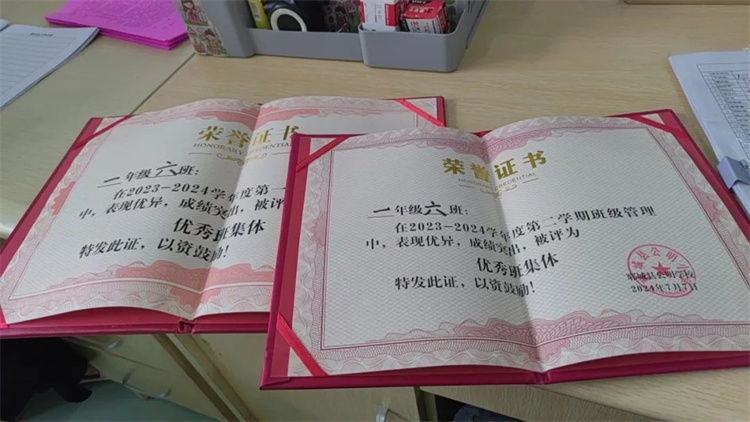 荣誉证书
HONORARY CREDENTIAL
一年级六班:
在2023-2024学年度第二
中，表现优异，成绩突出，被评
优秀班集体
特发此证，以资鼓励!
荣誉证书
二年级六班:
在2023-2024学年度第二学期班级管理
中，表现优异，成绩突出，被评为
优秀班集体
特发此证，以资鼓励!
郸城县公明学校
2024年7月7日